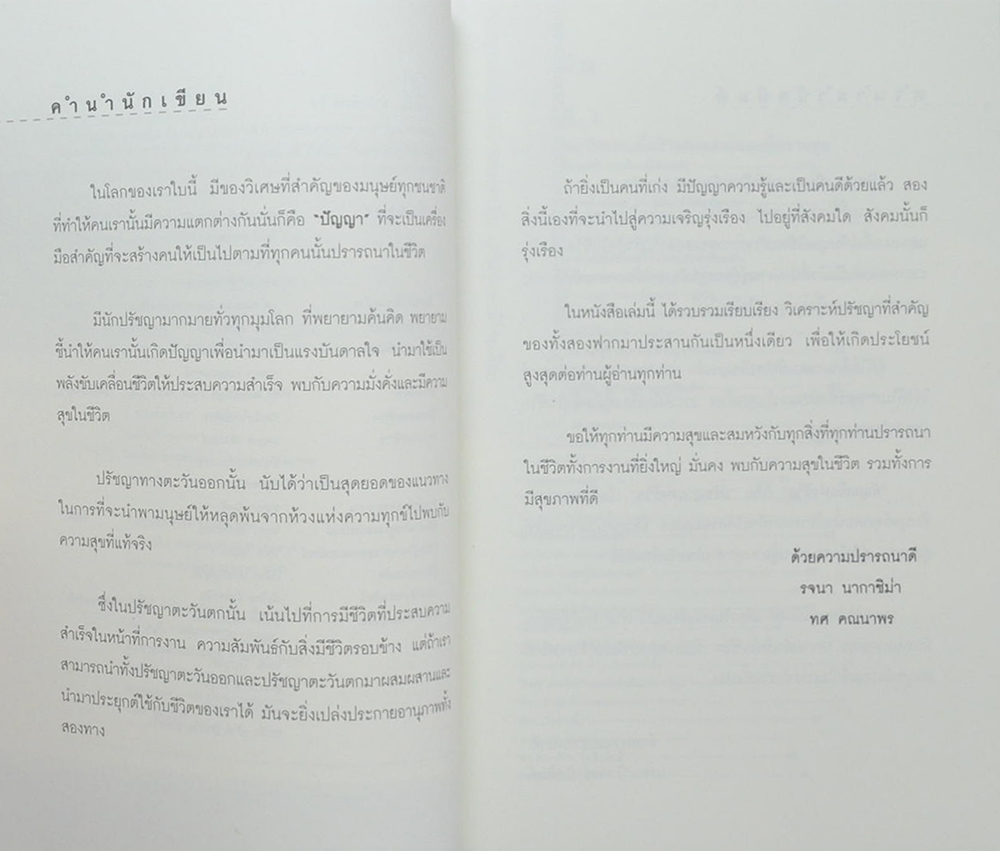 คำนำนักเขียน
ในโลกของเราใบนี้ มีของวิเศษที่สำคัญของมนุษย์ทุกชนชาติ
ที่ทำให้คนเรานั้นมีความแตกต่างกันนั่นก็คือ "ปัญญา" ที่จะเป็นเครื่อง
มือสำคัญที่จะสร้างคนให้เป็นไปตามที่ทุกคนนั้นปรารถนาในชีวิต
มีนักปรัชญามากมายทั่วทุกมุมโลก ที่พยายามค้นคิด พยายาม
ชี้นำให้คนเรานั้นเกิดปัญญาเพื่อนำมาเป็นแรงบันดาลใจ นำมาใช้เป็น
พลังขับเคลื่อนชีวิตให้ประสบความสำเร็จ พบกับความมั่งคั่งและมีความ
สุขในชีวิต
ปรัชญาทางตะวันออกนั้น นับได้ว่าเป็นสุดยอดของแนวทาง
ในการที่จะนำพามนุษย์ให้หลุดพ้นจากห้วงแห่งความทุกข์ไปพบกับ
ความสุขที่แท้จริง
ซึ่งในปรัชญาตะวันตกนั้น เน้นไปที่การมีชีวิตที่ประสบความ
สำเร็จในหน้าที่การงาน ความสัมพันธ์กับสิ่งมีชีวิตรอบข้าง แต่ถ้าเรา
สามารถนำทั้งปรัชญาตะวันออกและปรัชญาตะวันตกมาผสมผสานและ
นำมาประยุกต์ใช้กับชีวิตของเราได้ มันจะยิ่งเปล่งประกายอานุภาพทั้ง
สองทาง
ถ้ายิ่งเป็นคนที่เก่ง มีปัญญาความรู้และเป็นคนดีด้วยแล้ว สอง
สิ่งนี้เองที่จะนำไปสู่ความเจริญรุ่งเรือง ไปอยู่ที่สังคมใด สังคมนั้นก็
รุ่งเรือง
ในหนังสือเล่มนี้ ได้รวบรวมเรียบเรียง วิเคราะห์ปรัชญาที่สำคัญ
ของทั้งสองฟากมาประสานกันเป็นหนึ่งเดียว เพื่อให้เกิดประโยชน์
สูงสุดต่อท่านผู้อ่านทุกท่าน
ขอให้ทุกท่านมีความสุขและสมหวังกับทุกสิ่งที่ทุกท่านปรารถนา
ในชีวิตทั้งการงานที่ยิ่งใหญ่ มั่นคง พบกับความสุขในชีวิต รวมทั้งการ
มีสุขภาพที่ดี
ด้วยความปรารถนาดี
รจนา นากาชิม่า
ทศ คณนาพร